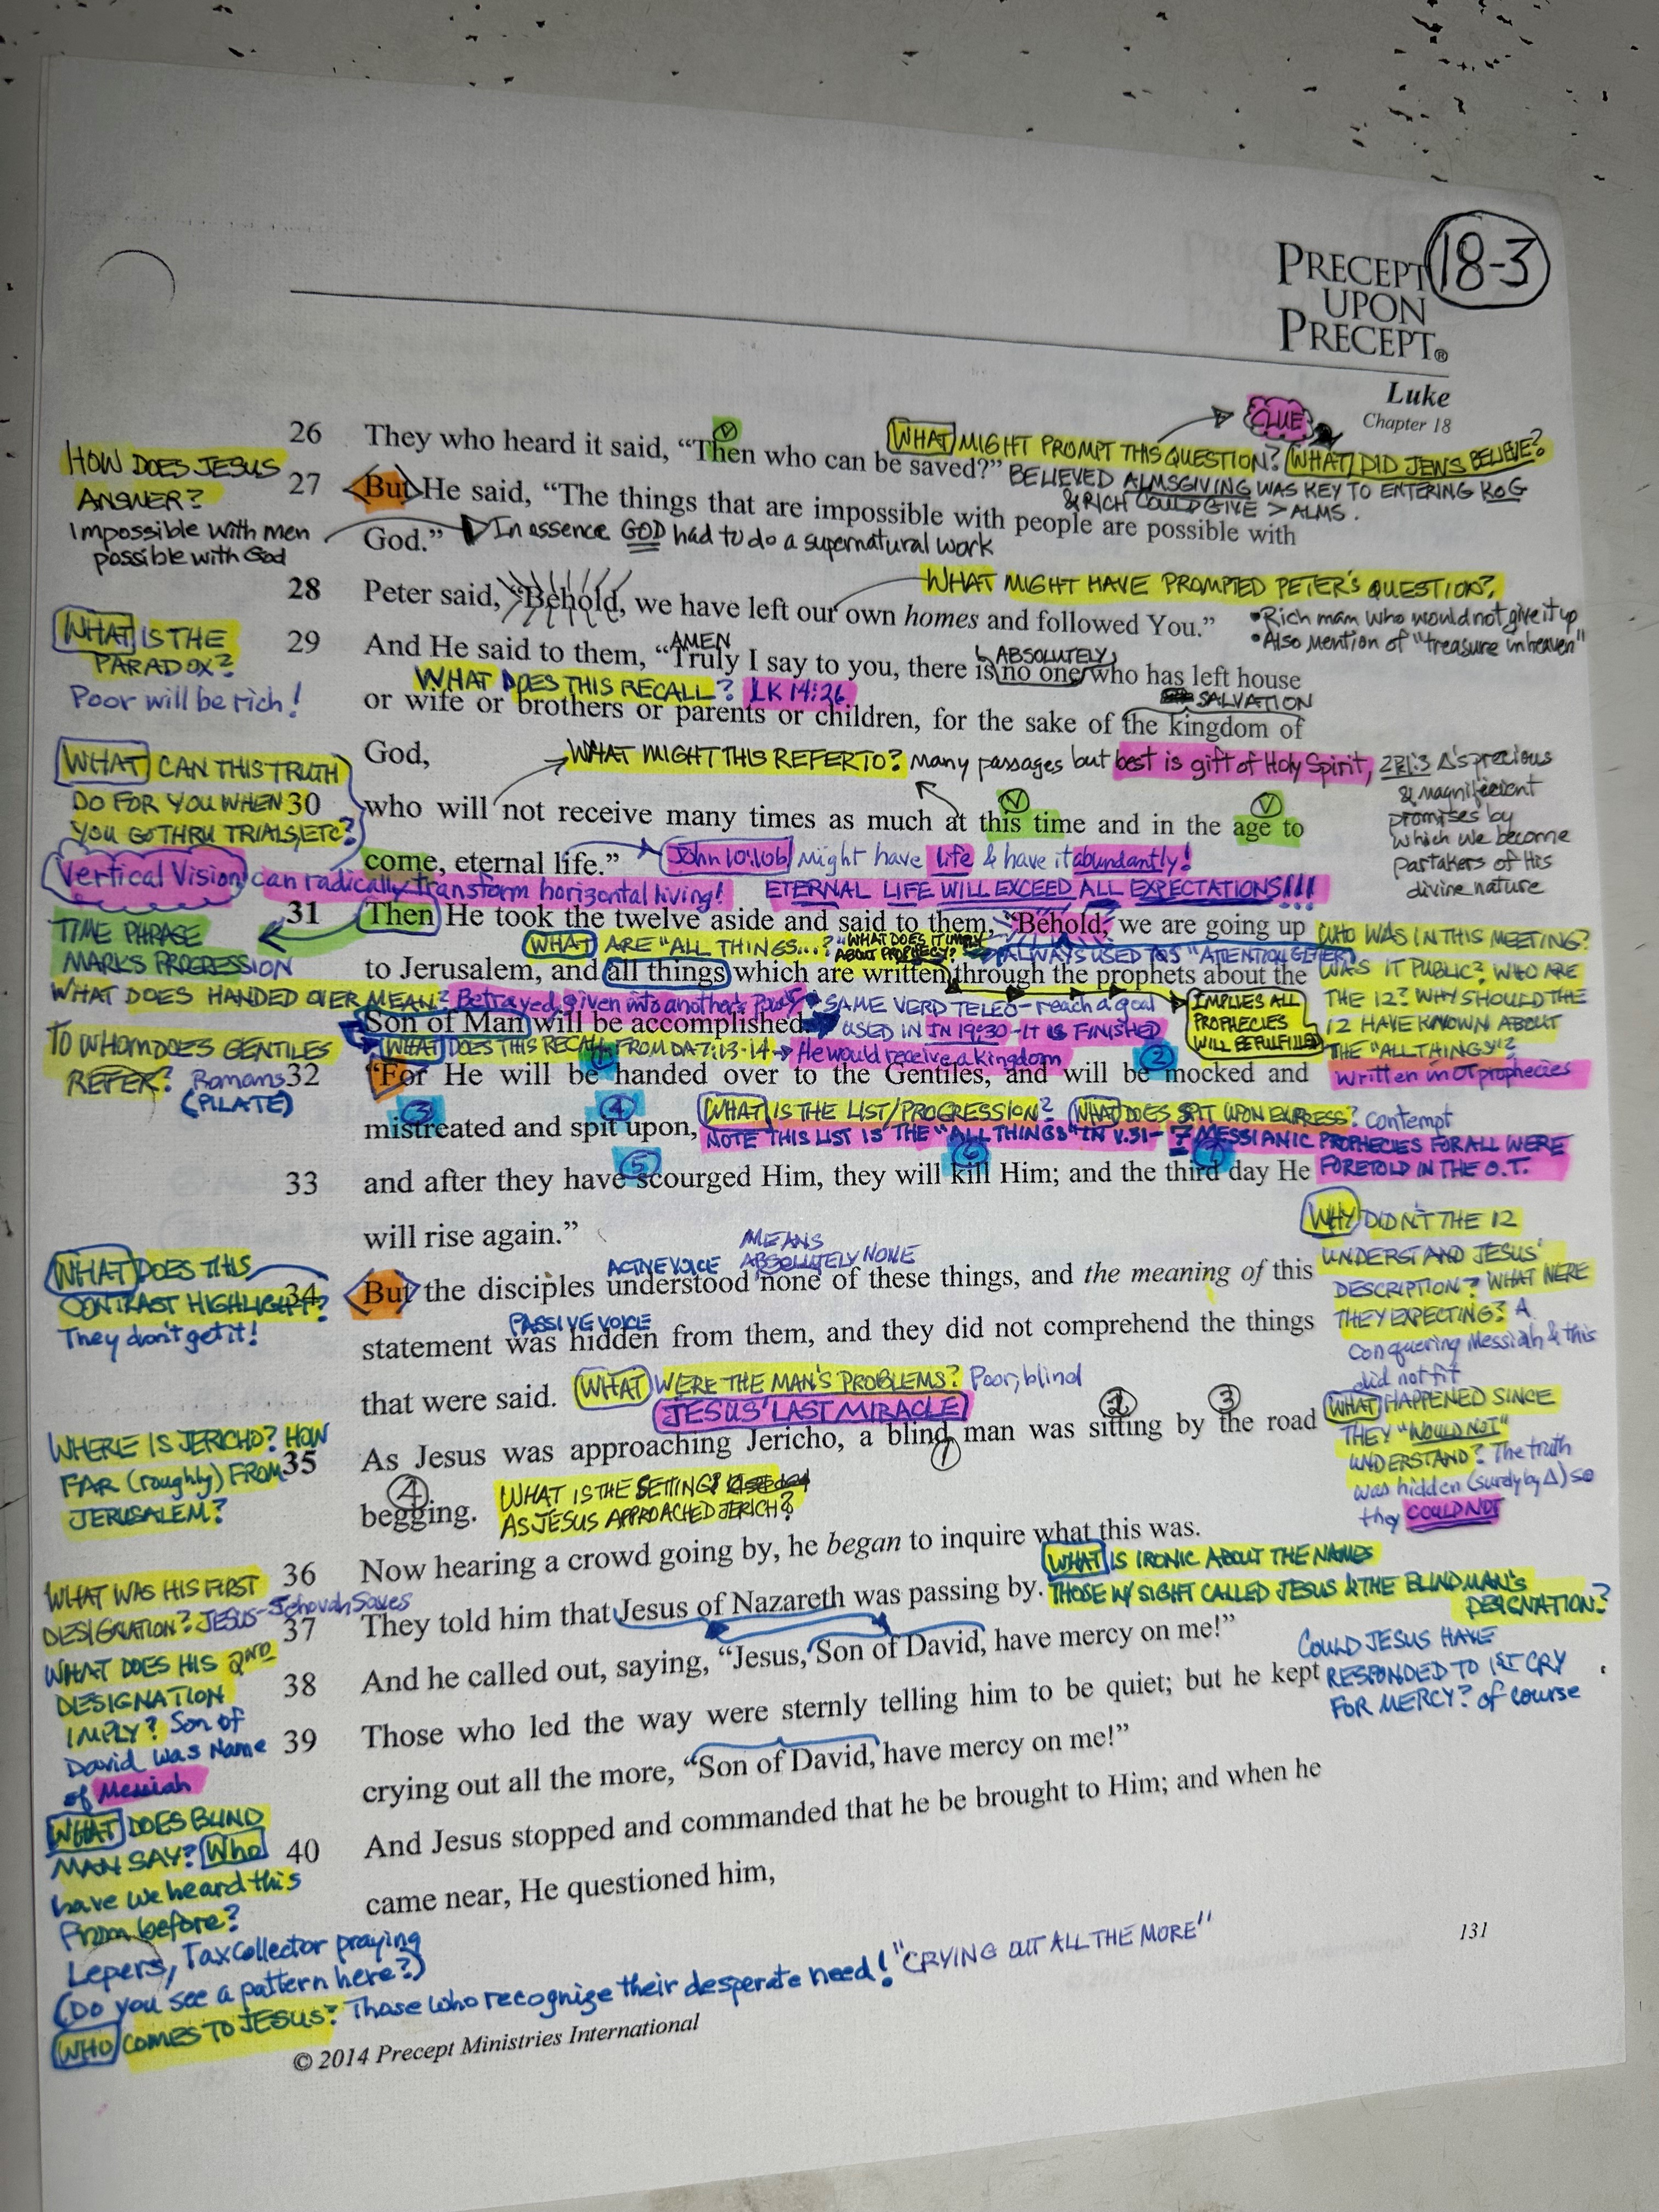 18-3
PRECEPT
UPON
PRECEPT®
Luke
Chapter 18
CLUE
WHAT MIGHT PROMPT THIS QUESTION? WHAT DID JEWS BELIEVE?
26 They who heard it said, “Then who can be saved?”
BELIEVED ALMSGIVING WAS KEY TO ENTERING KoG
& RICH COULD GIVE > ALMS.
HOW DOES JESUS
ANSWER?
Impossible with men
possible with God
27 But He said, “The things that are impossible with people are possible with
God.”
In essence GOD had to do a supernatural work
WHAT MIGHT HAVE PROMPTED PETER'S QUESTION?
28 Peter said, “Behold, we have left our own homes and followed You.”
•Rich man who would not give it up
•Also mention of "treasure in heaven"
WHAT IS THE
PARADOX?
Poor will be rich!
AMEN
ABSOLUTELY
29 And He said to them, “Truly I say to you, there is no one who has left house
WHAT DOES THIS RECALL? LK 14:26
SALVATION
or wife or brothers or parents or children, for the sake of the kingdom of
God,
WHAT MIGHT THIS REFER TO? Many passages but best is gift of Holy Spirit,
2P1:3 Δ's precious
& magnificent
promises by
which we become
partakers of His
divine nature
WHAT CAN THIS TRUTH
DO FOR YOU WHEN
YOU GO THRU TRIALS, ETC?
30 who will not receive many times as much at this time and in the age to
come, eternal life.”
John 10:10b might have life & have it abundantly!
Vertical Vision can radically transform horizontal living!
ETERNAL LIFE WILL EXCEED ALL EXPECTATIONS!!!
31 Then He took the twelve aside and said to them, “Behold, we are going up
TIME PHRASE
MARKS PROGRESSION
WHAT ARE "ALL THINGS...?
WHAT DOES IT IMPLY
ABOUT PROPHECY?
ALWAYS USED AS "ATTENTION GETTER"
to Jerusalem, and all things which are written through the prophets about the
WHO WAS IN THIS MEETING?
WAS IT PUBLIC? WHO ARE
THE 12? WHY SHOULD THE
12 HAVE KNOWN ABOUT
THE "ALL THINGS"?
written in OT prophecies
WHAT DOES HANDED OVER MEAN? Betrayed, given into another's
SAME VERB TELEO - reach a goal
USED IN JN 19:30 - IT IS FINISHED
IMPLIES ALL
PROPHECIES
WILL BE FULFILLED
Son of Man will be accomplished.
WHAT DOES THIS RECALL FROM DA 7:13-14 → He would receive a kingdom
TO WHOM DOES GENTILES
REFER? Romans
(PILATE)
1 2
32 “For He will be handed over to the Gentiles, and will be mocked and
3 4
WHAT IS THE LIST/PROGRESSION? WHAT DOES SPIT UPON EXPRESS? Contempt
mistreated and spit upon,
NOTE THIS LIST IS THE "ALL THINGS" IN V.31 - 7 MESSIANIC PROPHECIES FOR ALL WERE
FORETOLD IN THE O.T.
5 6 7
33 and after they have scourged Him, they will kill Him; and the third day He
will rise again.”
ACTIVE VOICE
MEANS
ABSOLUTELY NONE
WHAT DOES THIS
CONTRAST HIGHLIGHT?
They don't get it!
34 But the disciples understood none of these things, and the meaning of this
PASSIVE VOICE
statement was hidden from them, and they did not comprehend the things
WHY DIDN'T THE 12
UNDERSTAND JESUS'
DESCRIPTION? WHAT WERE
THEY EXPECTING? A
Conquering Messiah & this
did not fit
that were said.
WHAT WERE THE MAN'S PROBLEMS? Poor, blind
JESUS' LAST MIRACLE
WHAT HAPPENED SINCE
THEY "WOULD NOT"
UNDERSTAND? The truth
was hidden (surely by Δ) so
they COULD NOT
WHERE IS JERICHO? HOW
FAR (roughly) FROM
JERUSALEM?
2 3
35 As Jesus was approaching Jericho, a blind man was sitting by the road
1
4
begging.
WHAT IS THE SETTING?
AS JESUS APPROACHED JERICH?
36 Now hearing a crowd going by, he began to inquire what this was.
WHAT IS IRONIC ABOUT THE NAMES
THOSE W/ SIGHT CALLED JESUS & THE BLIND MAN'S
DESIGNATION?
WHAT WAS HIS FIRST
DESIGNATION? JESUS - Jehovah Saves
37 They told him that Jesus of Nazareth was passing by.
WHAT DOES HIS 2ND
DESIGNATION
IMPLY? Son of
David was Name
of Messiah
38 And he called out, saying, “Jesus, Son of David, have mercy on me!”
COULD JESUS HAVE
RESPONDED TO 1ST CRY
FOR MERCY? of course
39 Those who led the way were sternly telling him to be quiet; but he kept
crying out all the more, “Son of David, have mercy on me!”
WHAT DOES BLIND
MAN SAY? Who
have we heard this
from before?
Lepers, Tax Collector praying
(Do you see a pattern here?)
40 And Jesus stopped and commanded that he be brought to Him; and when he
came near, He questioned him,
WHO COMES TO JESUS? Those who recognize their desperate need! "CRYING OUT ALL THE MORE"
131
© 2014 Precept Ministries International